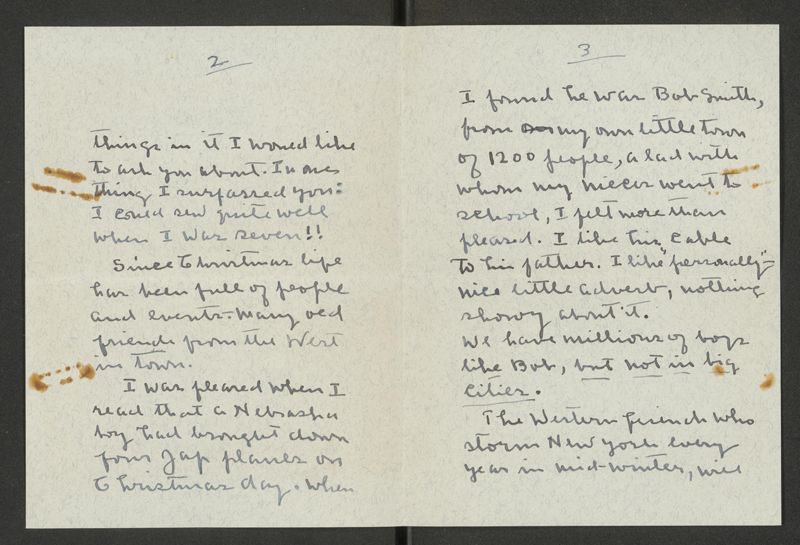 2
things in it I would like
to ask you about. In one
thing I surpassed you:
I could sew quite well
when I was seven!!
Since Christmas life
has been full of people
and events - many old
friends from the West
in town.
I was pleased when I
read that a Nebraska
boy had brought down
four Jap planes on
Christmas day. When
3
I found he was Bob Smith,
from my own little town
of 1200 people, a lad with
whom my nieces went to
school, I felt more than
pleased. I like his cable
to his father. I like "personally" -
nice little adverb, nothing
showy about it.
We have millions of boys
like Bob, but not in big
cities.
The Western friends who
storm New York every
year in mid-winter, will